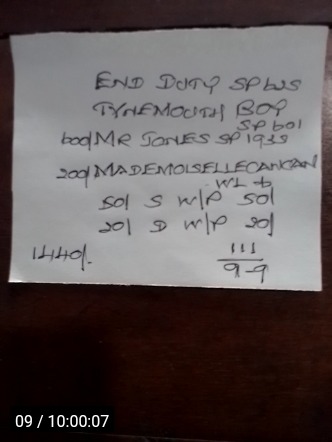 END DUTY SP625
TYNEMOUTH BOY
SP601
600/MR JONES SP1935
200/MADEMOISELLECANCAN
W1 - 6
50/ S W/P 50/
20/ D W/P 20/
1440/.
111
9-9
09 / 10:00:07